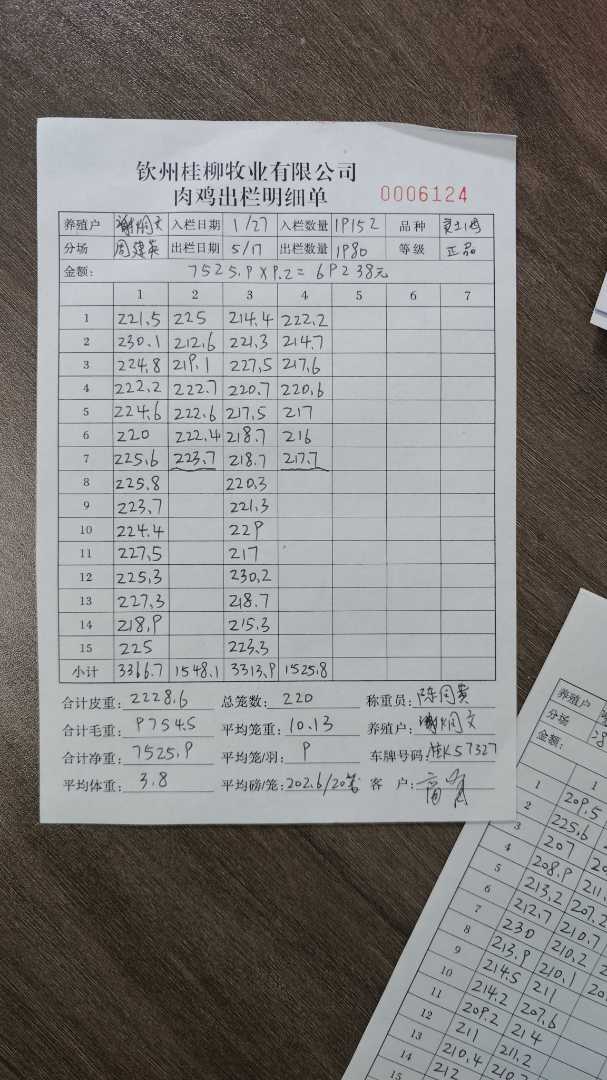 钦州桂柳牧业有限公司
肉鸡出栏明细单 0006124
养殖户 谢炯文 入栏日期 1/27 入栏数量 19152 品种
分场 周建英 出栏日期 5/17 出栏数量 1980 等级 正品
金额: 7525.9×9.2=69238元
1 2 3 4 5 6 7
1 221.5 225 214.4 222.2
2 230.1 212.6 221.3 214.7
3 224.8 219.1 227.5 217.6
4 222.2 222.7 220.7 220.6
5 224.6 222.6 217.5 217
6 220 222.4 218.7 216
7 225.6 223.7 218.7 217.7
8 225.8 220.3
9 223.7 221.3
10 224.4 229
11 227.5 217
12 225.3 230.2
13 227.3 218.7
14 218.9 215.3
15 225 223.3
小计 3366.7 1548.1 3313.9 1525.8
合计皮重: 2228.6 总笼数: 220 称重员:
合计毛重: 9754.5 平均笼重: 10.13 养殖户: 谢炯文
合计净重: 7525.9 平均笼/羽: 9 车牌号码: 桂K57327
平均体重: 3.8 平均磅/笼: 202.6/20 客 户:
养殖户
分场
金额:
1
1 209.5
2 225.6
3 207
4 208.9 211.
5 213.2 207.2
6 212.7 210.7
7 230 210.2
8 213.9 210.1
9 214.5 211
10 214.2 207.6
11 209.2 214
12 211 211.2
13 210.4 210.
14 212
15